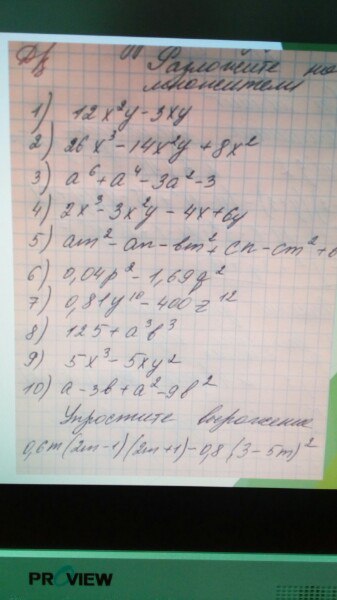 Д/з Разложите на
множители
1) 12x²y - 3xy
2) 26x³ - 14x²y + 8x²
3) a⁶ + a⁴ - 3a² - 3
4) 2x³ - 3x²y - 4x + 6y
5) am² - an - bm² + cn - cm² +
6) 0,04p² - 1,69q²
7) 0,81y¹⁰ - 400z¹²
8) 125 + a³b³
9) 5x³ - 5xy²
10) a - 3b + a² - 9b²
Упростите выражение
0,6m(2m-1)(2m+1) - 0,8(3-5m)²
PROVIEW